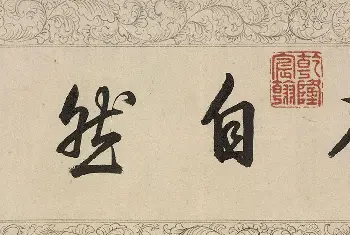 自然
乾隆宸翰